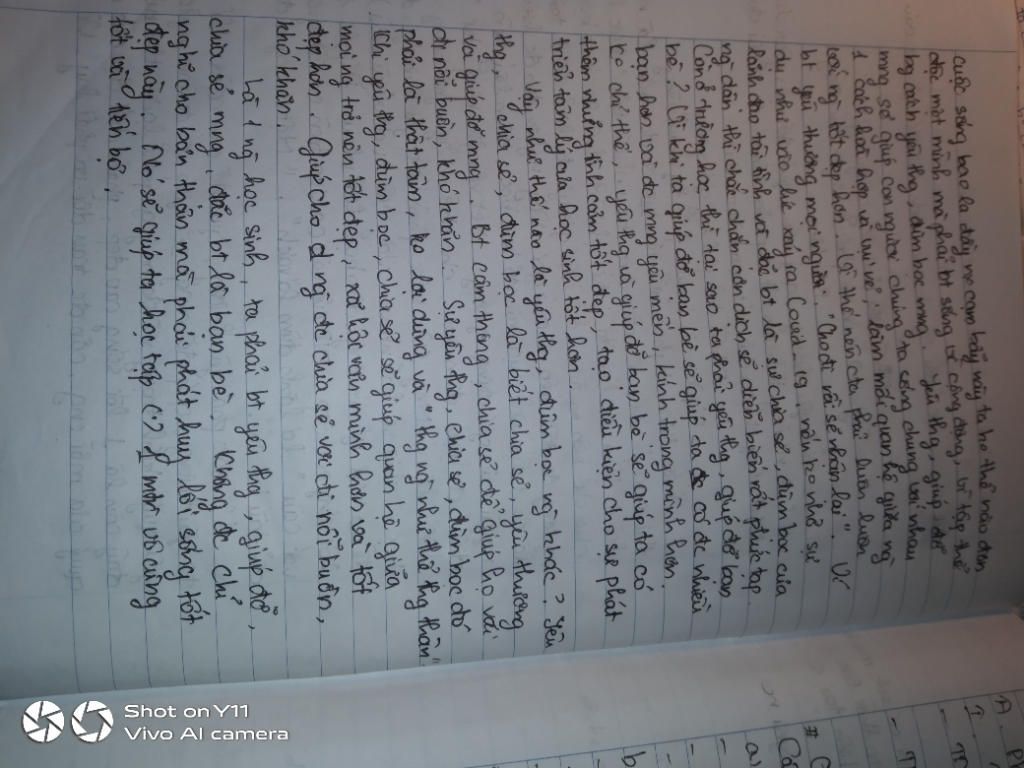 cuộc sống bao la đầy rẫy cạm bẫy này ta ko thể nào đơn
độc một mình mà phải bt sống vì cộng đồng, vì tập thể
bg cách yêu thg, đùm bọc mng. Yêu thg, giúp đỡ
mng sẽ giúp con người chúng ta sống chung với nhau
1 cách hoà hợp và vui vẻ, làm mối quan hệ giữa ng
với ng tốt đẹp hơn. Là thế nên cta phải luôn luôn
bt yêu thương mọi người "Cho đi rồi sẽ nhận lại". Ví
dụ như vào lúc xảy ra Covid-19 nếu ko nhờ sự
lãnh đạo tài tình và đặc bt là sự chia sẻ, đùm bọc của
ng dân thì chắc chắn còn dịch sẽ diễn biến rất phức tạp.
Còn ở trường học thì tại sao ta phải yêu thg, giúp đỡ bạn
bè? Vì khi ta giúp đỡ bạn bè sẽ giúp ta có đc nhiều
bạn hơn và đc mng yêu mến, kính trọng mình hơn.
Ko chỉ thế, yêu thg và giúp đỡ bạn bè sẽ giúp ta có
thêm những tình cảm tốt đẹp, tạo điều kiện cho sự phát
triển tâm lý của học sinh tốt hơn.
Vậy như thế nào là yêu thg, đùm bọc ng khác? Yêu
thg, chia sẻ, đùm bọc là biết chia sẻ, yêu thương
và giúp đỡ mng. Bt cảm thông, chia sẻ để giúp họ vơi
đi nỗi buồn, khó khăn. Sự yêu thg, chia sẻ, đùm bọc đó
phải là thật tâm, ko lợi dụng và "thg ng như thể thg thân"
Khi yêu thg, đùm bọc, chia sẻ sẽ giúp quan hệ giữa
mọi ng trở nên tốt đẹp, xã hội văn minh hơn và tốt
đẹp hơn. Giúp cho ng đc chia sẻ vơi đi nỗi buồn,
khó khăn.
Là 1 ng học sinh, ta phải bt yêu thg, giúp đỡ,
chia sẻ mng, đặc bt là bạn bè. Không đc chỉ
nghĩ cho bản thân mà phải phát huy lối sống tốt
đẹp này. Nó sẽ giúp ta học tập vô cùng
tốt và tiến bộ.
Shot on Y11
Vivo AI camera